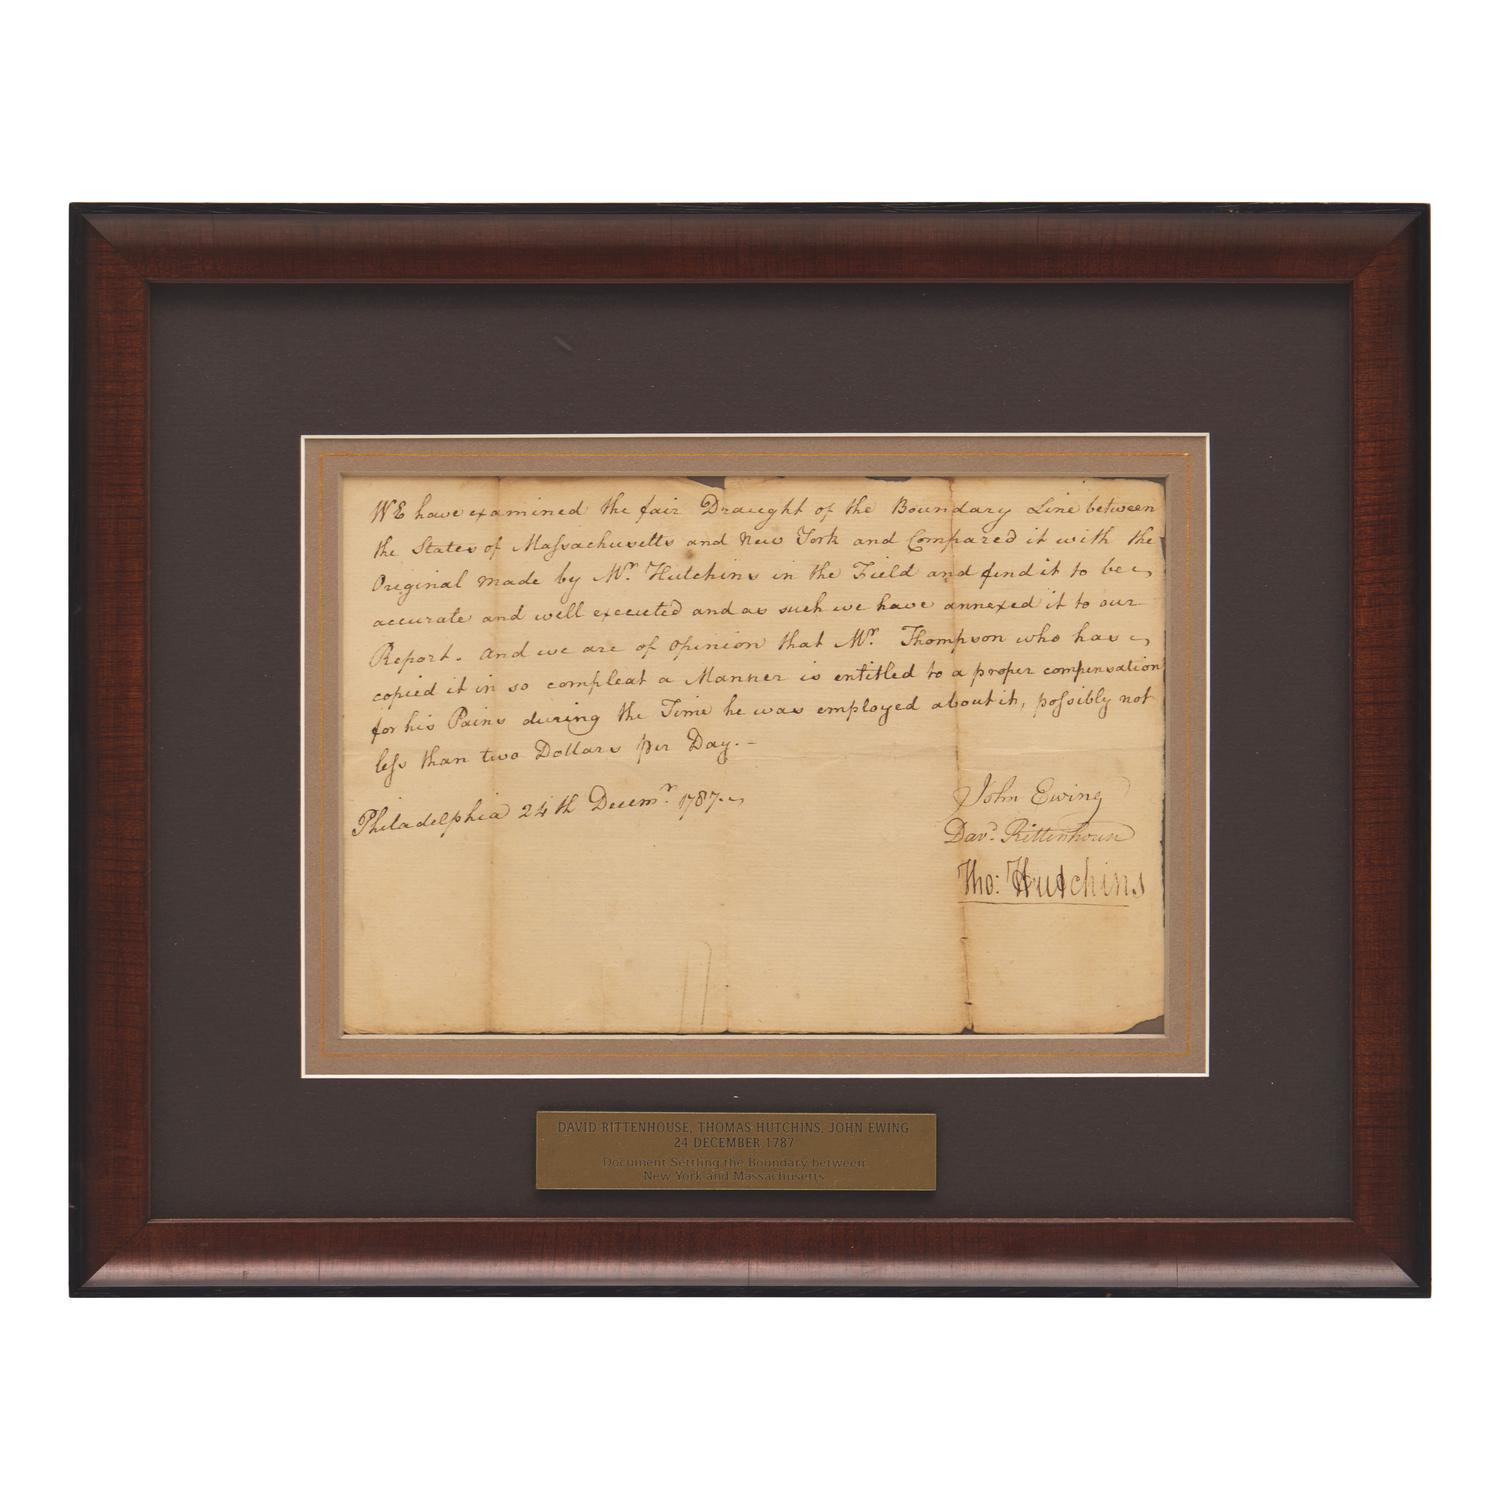 WE have examined the fair Draught of the Boundary Line between
the States of Maſsachusetts and New York and Compared it with the
Original made by Mr. Hutchins in the Field and find it to be
accurate and well executed and as such we have annexed it to our
Report. And we are of Opinion that Mr. Thompson who has
copied it in so compleat a Manner is entitled to a proper compensation
for his Pains during the Time he was employed about it, poſsibly not
leſs than two Dollars per Day. –
Philadelphia 24th Decemr. 1787.
John Ewing
Davd. Rittenhouse
Tho: Hutchins
DAVID RITTENHOUSE, THOMAS HUTCHINS, JOHN EWING
24 DECEMBER 1787
Document Settling the Boundary between
New York and Massachusetts